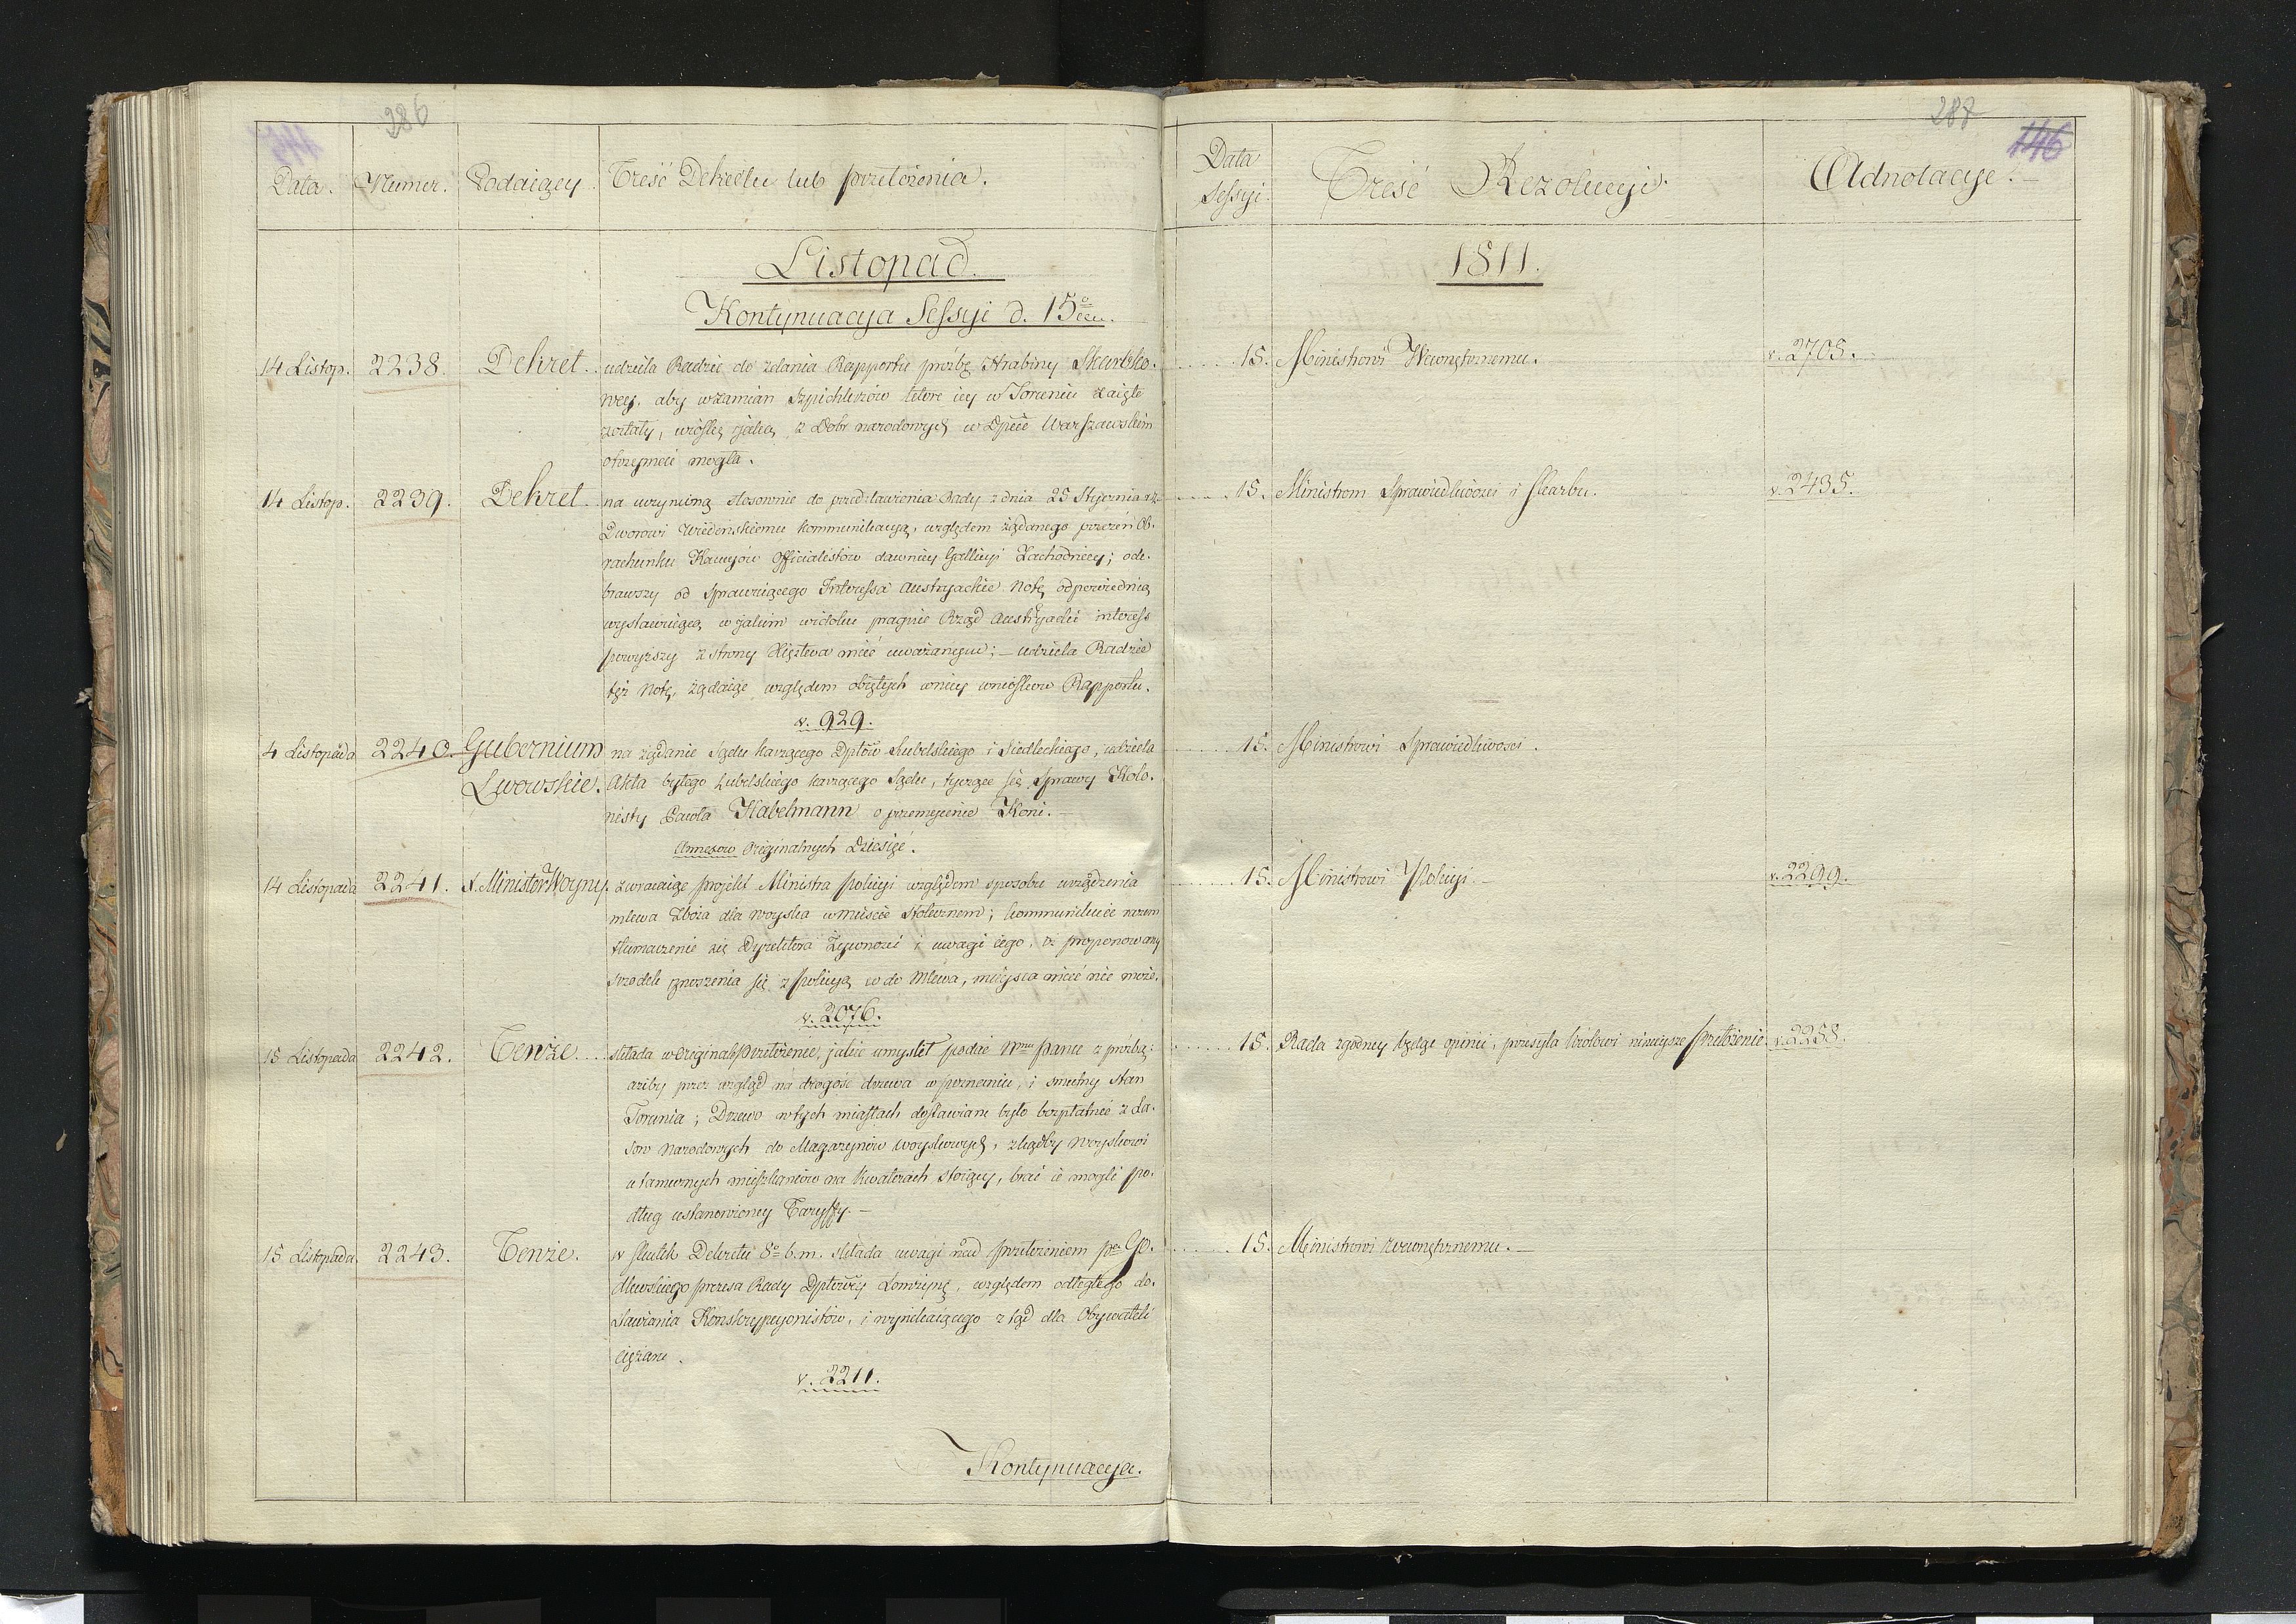 286
Data. Numer. Podaiący. Treść Dekretu lub przełożenia.
Listopad.
Kontynuacya Sessyi d. 15º eiu.
14 Listop. 2238. Dekret. udziela Radzie do zdania Rapportu prośbę Hrabiny Skarbko-
wey, aby wzamian Szpichlerzów które iey w Toruniu zaięte
zostały, wioskę jaką z Dobr narodowych w Dpcie Warszawskim
otrzymać mogła.
14 Listop. 2239. Dekret. na uczynioną stosownie do przedstawienia Rady z dnia 25 Stycznia
Dworowi Wiedeńskiemu kommunikacyą, względem żądanego przezeń Ob-
rachunku Kaucyów Officialistów dawniey Gallicyi Zachodniey; ode-
brawszy od Sprawuiącego Interessa Austryackie Notę odpowiednią
wystawuiącą w jakim widoku pragnie Rząd Austryacki interess
powyższy z strony Xięztwa mieć uważanym; – udziela Radzie
tęż Notę, żądaiąc względem obiętych w niey wniosków Rapportu.
v. 929.
4 Listopada 2240. Gubernium na żądanie Sądu karzącego Dptów Lubelskiego i Siedleckiego, udziela
Lwowskie. Akta byłego Lubelskiego karzącego Sądu, tyczące się Sprawy Kolo-
nisty Pawła Habelmann o przemycenie Koni. –
Annexow Originalnych Dziesięć.
14 Listopada 2241. X. Minister Woyny. zwracaiąc projekt Ministra Policyi względem sposobu urządzenia
mlewa Zboża dla woyska w mieście stołecznem; kommunikuie razem
tłumaczenie się Dyrektora Żywności i uwagi iego, iż proponowany
srodek znoszenia się z Policyą co do Mlewa, mieysca mieć nie może.
v. 2076.
15 Listopada 2242. Tenże składa w Originale przełożenie, jakie umyślił podać Nmu Panu z prośbą:
ażeby przez wzgląd na drogość drzewa w poznaniu, i smutny stan
Torunia; Drzewo w tych miastach dostawiane było bezpłatnie z La-
sów Narodowych do Magazynów woyskowych, zkądby Woyskowi
u tamecznych mieszkańców na Kwaterach stoiący, brać ie mogli po-
dług ustanowioney Taryffy. –
15 Listopada. 2243. Tenże. w skutek Dekretu 8º b.m. składa uwagi nad przełożeniem pa Go-
dlewskiego prezesa Rady Dptowey Łomżyńs, względem odległego do-
stawiania Konskrypcyonistów, i wynikaiącego ztąd dla Obywateli
ciężaru.
v. 2211.
Kontynuacya.
288
146
Data Sessyi. Treść Rezolucyi. Adnotacye.
1811.
15. Ministrowi Wewnętrznemu. v. 2705.
15. Ministrom Sprawiedliwości i Skarbu. v. 2435.
15. Ministrowi Sprawiedliwości.
15. Ministrowi Policyi. – v. 2299.
15. Rada zgodney będąc opinii, przesyła Królowi ninieysze przełożenie. v. 2258.
15. Ministrowi Wewnętrznemu. –